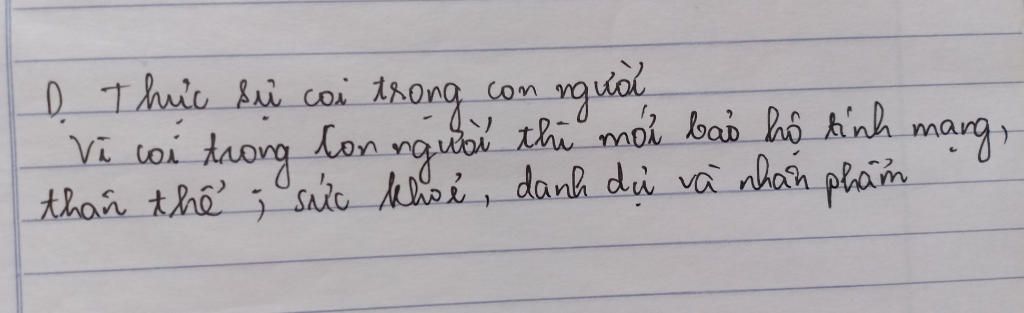 D. Thực sự coi trọng con người
Vì coi trọng con người thì mới bảo hộ tính mạng,
thân thể ; sức khoẻ, danh dự và nhân phẩm